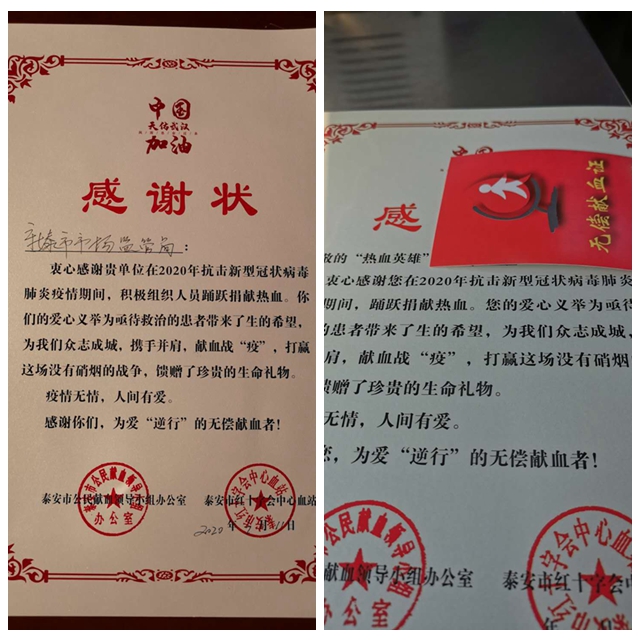 中国
天佑武汉
加油
感谢状
新泰市市场监管局：
衷心感谢贵单位在2020年抗击新型冠状病毒
肺炎疫情期间，积极组织人员踊跃捐献热血。你
们的爱心义举为亟待救治的患者带来了生的希望，
为我们众志成城，携手并肩，献血战“疫”，打赢
这场没有硝烟的战争，馈赠了珍贵的生命礼物。
疫情无情，人间有爱。
感谢你们，为爱“逆行”的无偿献血者！
泰安市公民献血领导小组办公室
泰安市红十字会中心血站
泰安市公民献血领导小组
办公室
泰安市红十字会中心血站
2020年 月11日
中国
感
无偿献血证
的“热血英雄”
衷心感谢您在2020年抗击新型冠状病毒肺
期间，踊跃捐献热血。您的爱心义举为亟待
的患者带来了生的希望，为我们众志成城，
肩，献血战“疫”，打赢这场没有硝烟
馈赠了珍贵的生命礼物。
无情，人间有爱。
您，为爱“逆行”的无偿献血者！
献血领导小组办公室
泰安市红十字会中
市公民献血领导小组
办公室
泰安市红十字会中心血站